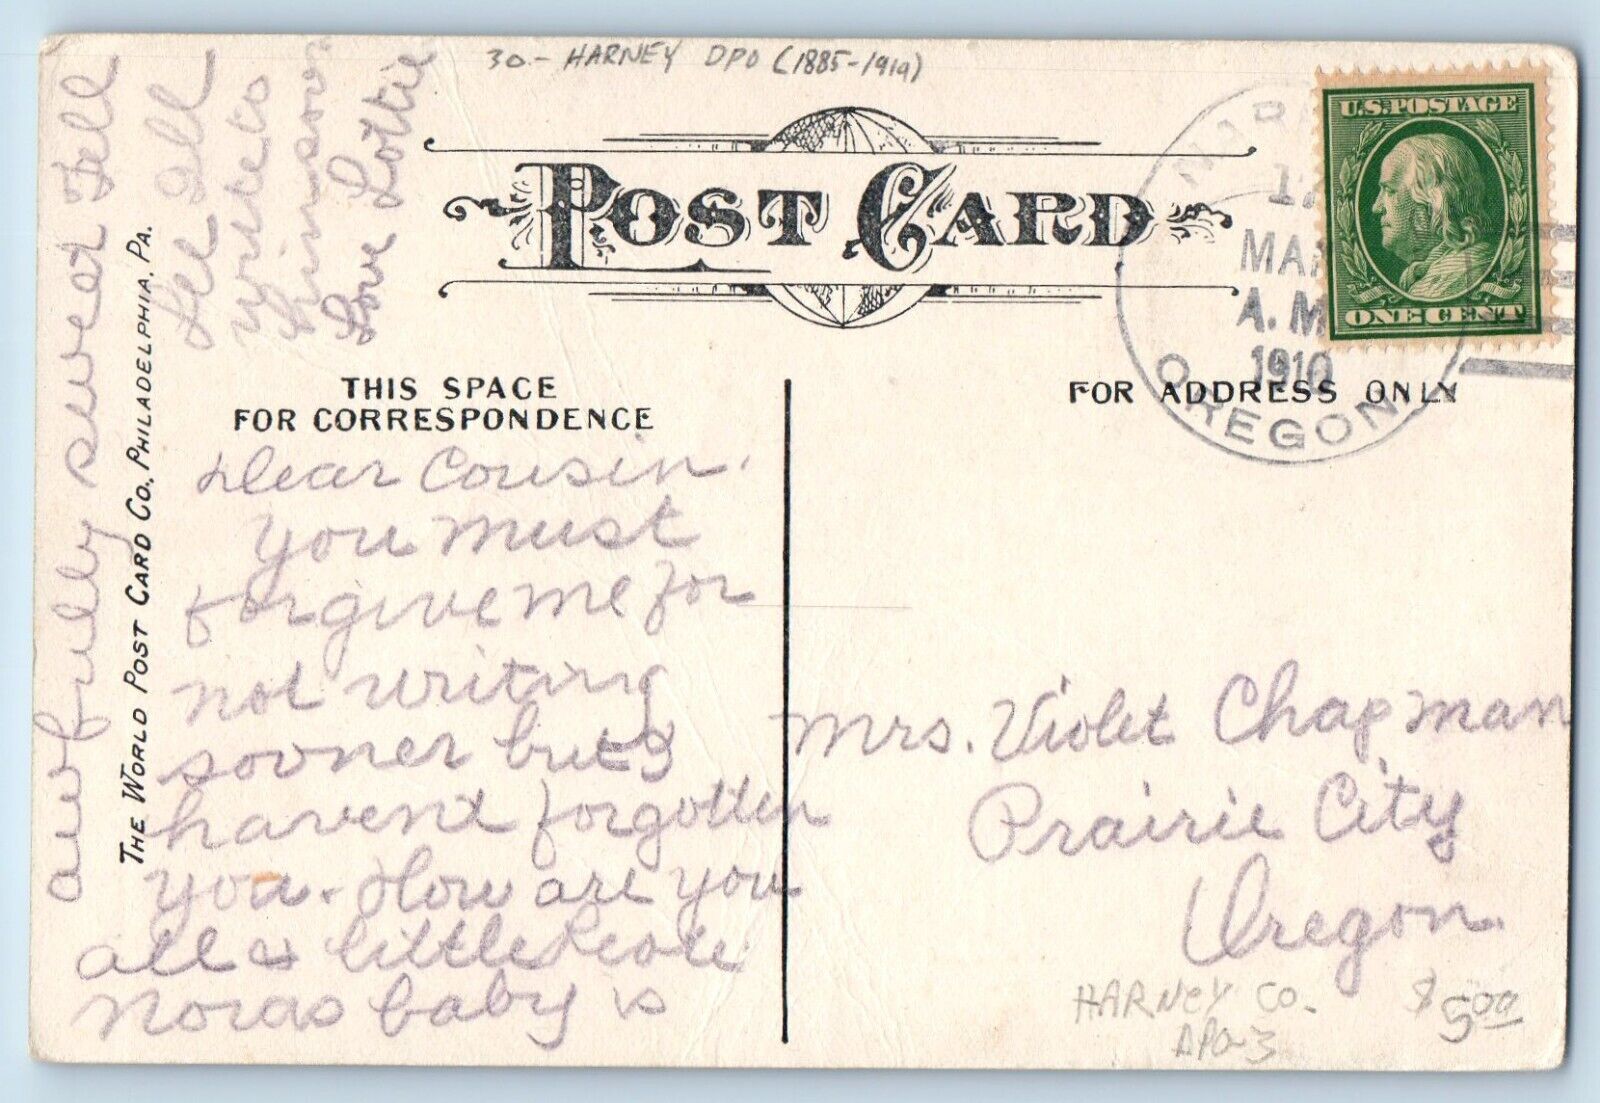 30.- HARNEY DPO (1885-1919)
POST CARD
U.S. POSTAGE
ONE CENT
MAR
A.M.
1910
OREGON.
THIS SPACE
FOR CORRESPONDENCE
FOR ADDRESS ONLY
THE WORLD POST CARD CO., PHILADELPHIA, PA.
Dear Cousin.
You must
forgive me for
not writing
sooner but I
havent forgotten
you. How are you
all & little
Noras baby is
awfully sweet Tell
write to
soon
Love Lottie
Mrs. Violet Chapman
Prairie City
Oregon.
HARNEY CO.
$5.00